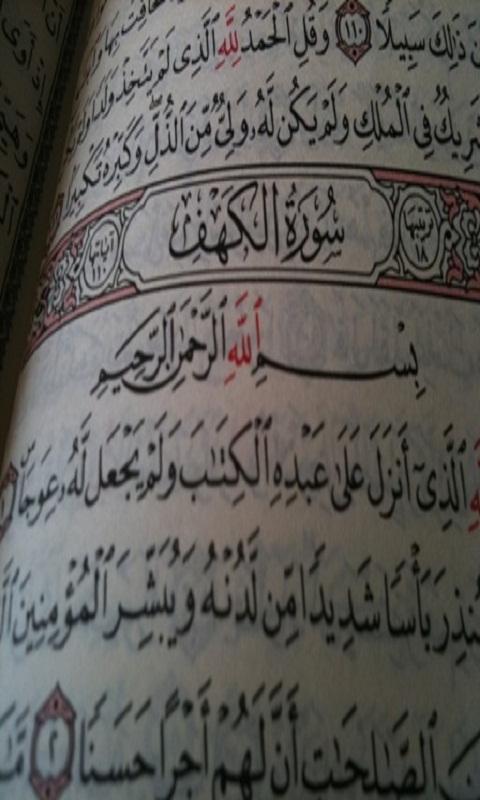 ذَٰلِكَ سَبِيلًا ١١٠ وَقُلِ ٱلْحَمْدُ لِلَّهِ ٱلَّذِى لَمْ يَتَّخِذْ وَلَدًا
شَرِيكٌ فِى ٱلْمُلْكِ وَلَمْ يَكُن لَّهُۥ وَلِىٌّ مِّنَ ٱلذُّلِّ وَكَبِّرْهُ تَكْبِيرًا
ترتيبها ١٨ سُورَةُ الكَهْف آياتها ١١٠
بِسْمِ ٱللَّهِ ٱلرَّحْمَٰنِ ٱلرَّحِيمِ
ٱلَّذِىٓ أَنزَلَ عَلَىٰ عَبْدِهِ ٱلْكِتَٰبَ وَلَمْ يَجْعَل لَّهُۥ عِوَجَاۜ
بَأْسًا شَدِيدًا مِّن لَّدُنْهُ وَيُبَشِّرَ ٱلْمُؤْمِنِينَ
ٱلصَّٰلِحَٰتِ أَنَّ لَهُمْ أَجْرًا حَسَنًا ٢